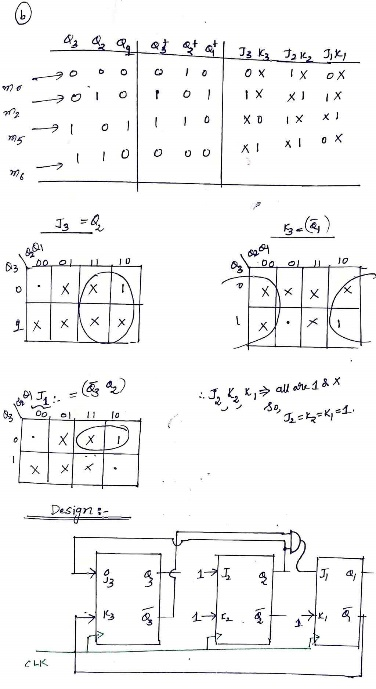 (b)
Q3 Q2 Q1 Q3+ Q2+ Q1+ J3 K3 J2 K2 J1 K1
m0 → 0 0 0 0 1 0 0 X 1 X 0 X
m2 → 0 1 0 1 0 1 1 X X 1 1 X
m5 → 1 0 1 1 1 0 X 0 1 X X 1
m6 → 1 1 0 0 0 0 X 1 X 1 0 X
J3 = Q2
K3 = (Q̄1)
Q3 Q2Q1 00 01 11 10
0 · X X 1
1 X X X X
Q3 Q2Q1 00 01 11 10
0 X X X X
1 X · X 1
J1 :- = (Q̄3 Q2)
Q3 Q2Q1 00 01 11 10
0 · X X 1
1 X X X ·
∴ J2, K2, K1 ⇒ all are 1 & X
So,
J2 = K2 = K1 = 1.
Design :-
J3 Q3 1→ J2 Q2 J1 Q1
K3 Q̄3 1→ K2 Q̄2 1→ K1 Q̄1
CLK